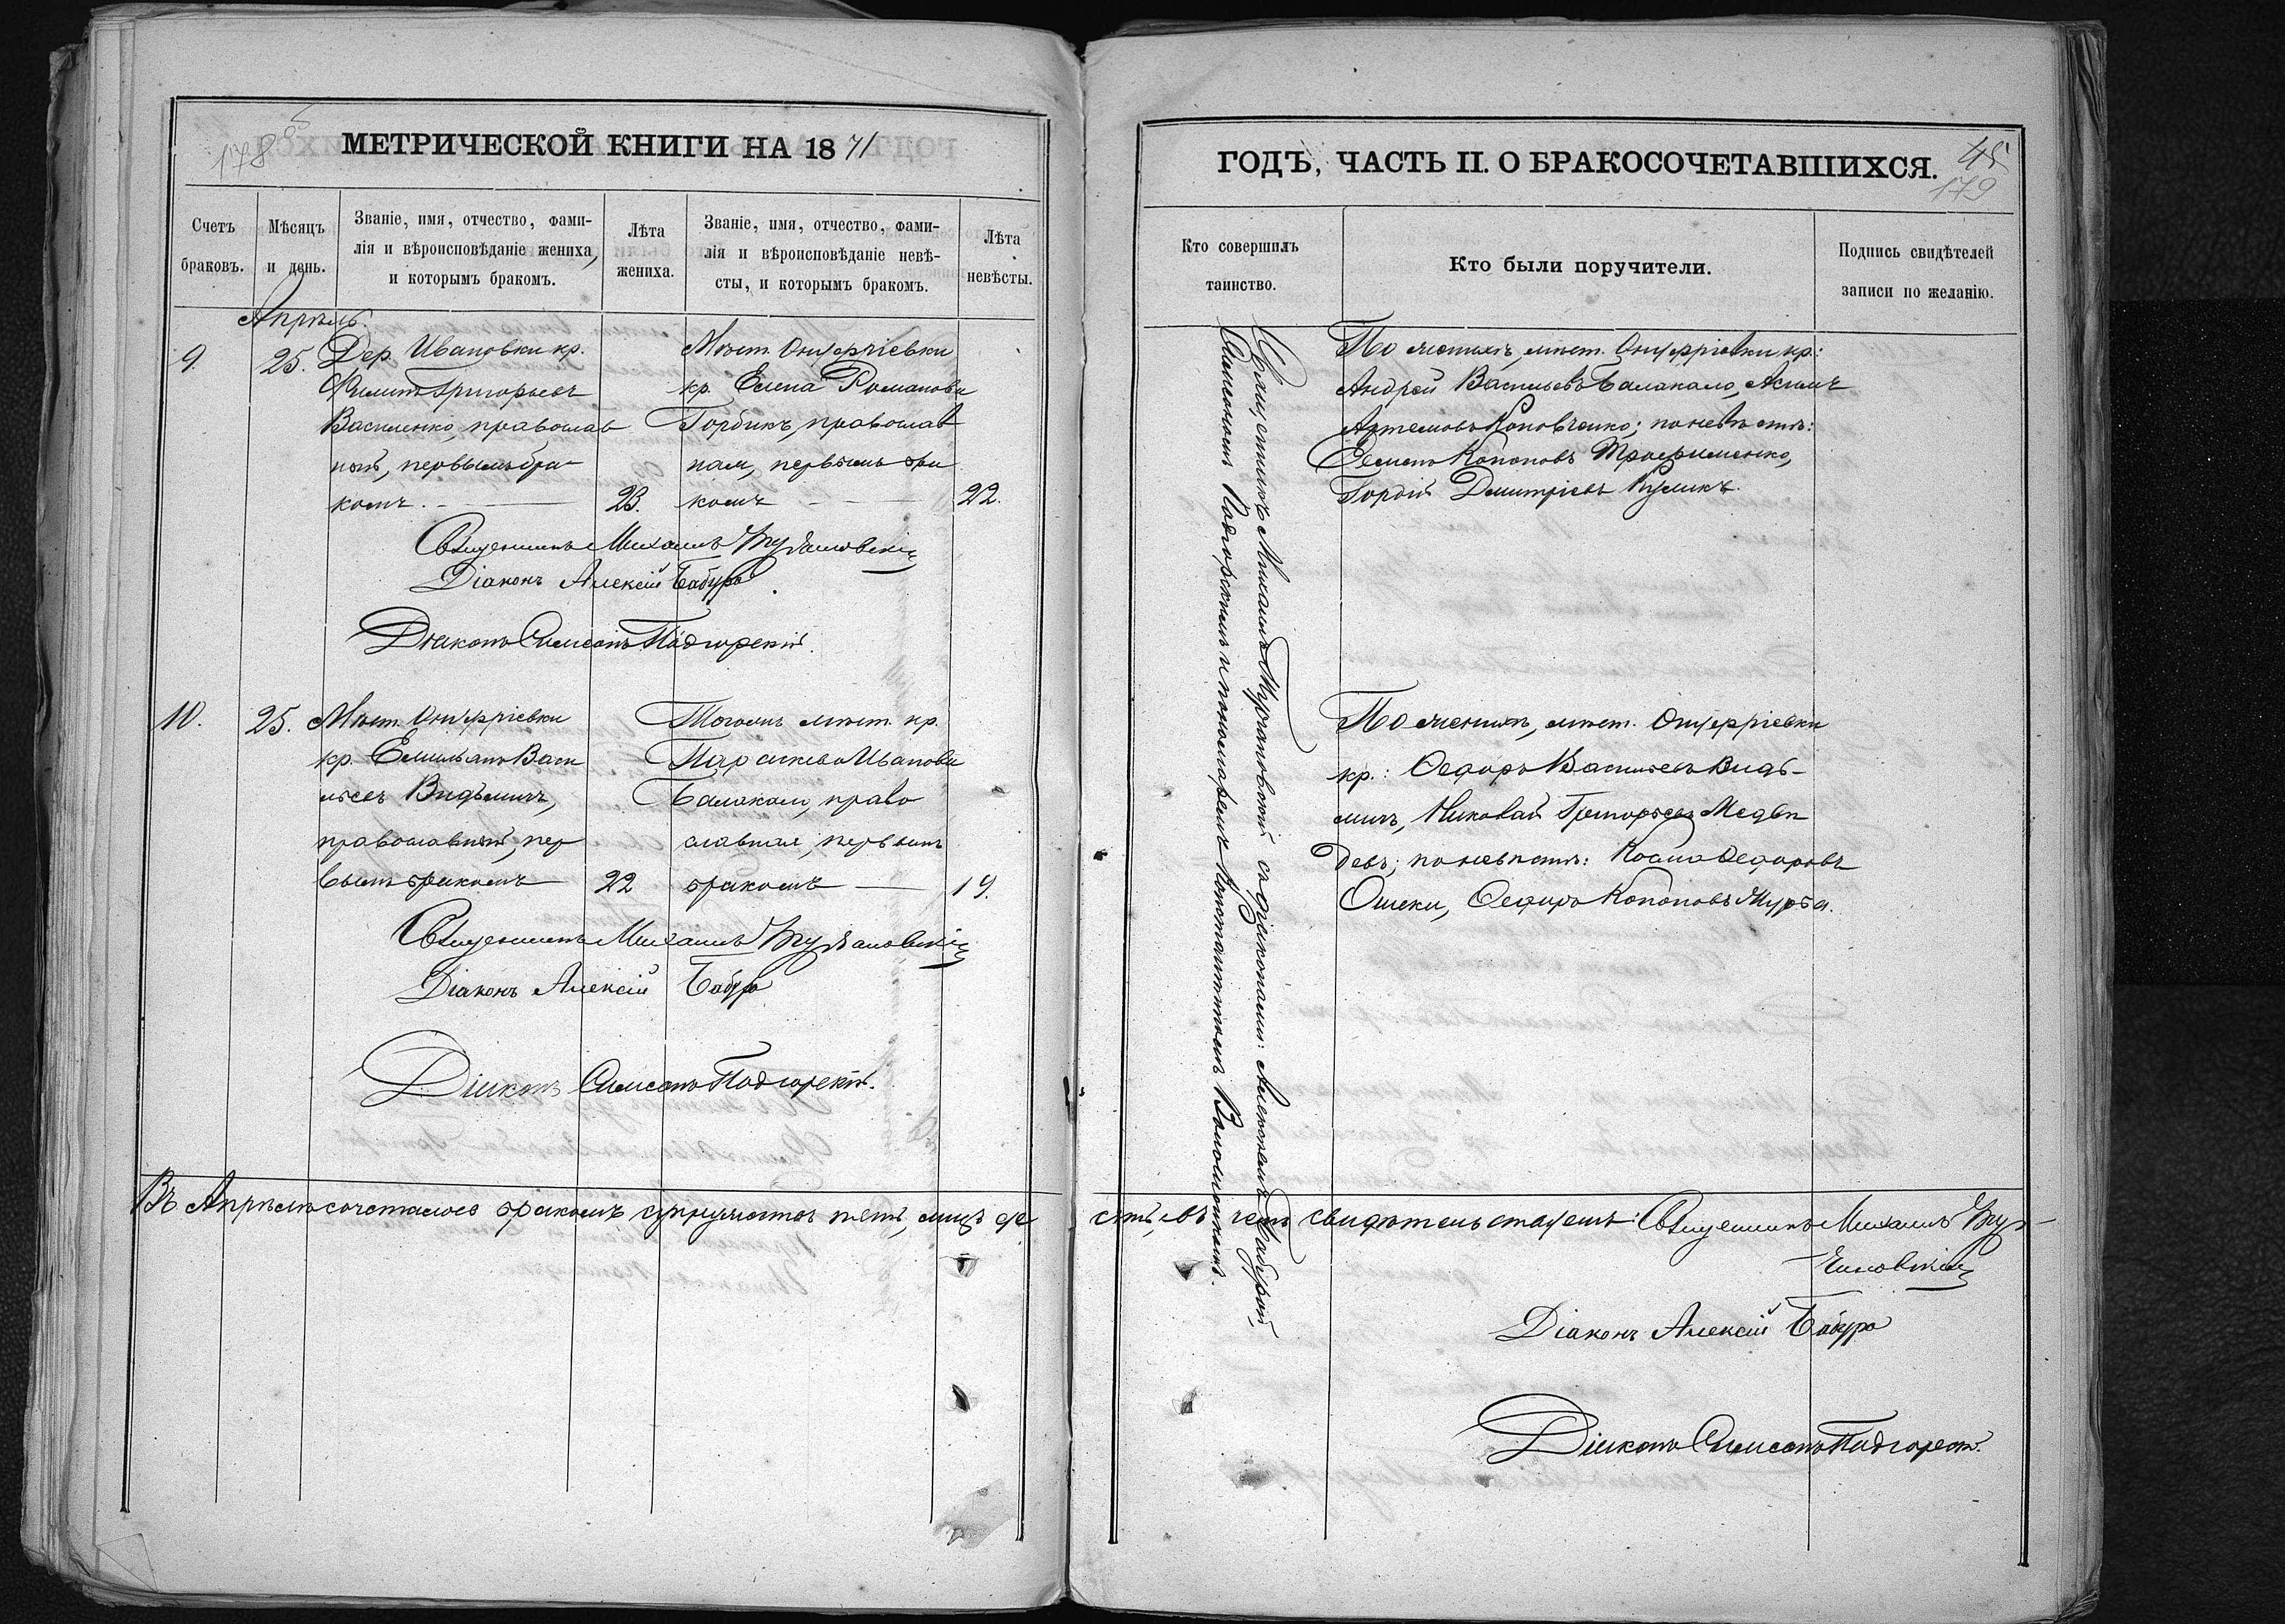 178 об
МЕТРИЧЕСКОЙ КНИГИ НА 1871
Счетъ браковъ.
Мѣсяцъ и день.
Званіе, имя, отчество, фами-
лія и вѣроисповѣданіе жениха,
и которымъ бракомъ.
Лѣта
жениха.
Званіе, имя, отчество, фами-
лія и вѣроисповѣданіе невѣ-
сты, и которымъ бракомъ.
Лѣта
невѣсты.
Апрѣль.
9.
25.
Дер. Ивановки кр.
Филипъ Григорьевъ
Василенко, православ
ный, первымъ бра-
комъ.
23.
Мѣст. Онуфріевки
кр. Елена Романова
Горбикъ, православ
ная, первымъ бра
комъ
22.
Священникъ Михаилъ
Діаконъ Алексій Бабура
Діаконъ Симеонъ Подгорскій.
10.
25.
Мѣст. Онуфріевки
кр. Емильянъ Васи
льевъ Видъминъ,
православный, пер
вымъ бракомъ
22
Тогожъ мѣст. кр.
Параскева Иванова
Балакало, право
славная, первымъ
бракомъ
19.
Священникъ Михаилъ
Діаконъ Алексій Бабура
Діаконъ Симеонъ Подгорскій.
Въ Апрѣлѣ сочеталось бракомъ супружествъ пять, лицъ де
ГОДЪ, ЧАСТЬ II. О БРАКОСОЧЕТАВШИХСЯ.
45
179
Кто совершилъ
таинство.
Кто были поручители.
Подпись свидѣтелей
записи по желанію.
Священникъ Михаилъ съ діаконами: Алексіемъ Бабурой,
Симеономъ Подгорскимъ и пономаремъ
По женихѣ, мѣст. Онуфріевки кр:
Андрей Васильевъ Балакало, Акимъ
Артемовъ Коновченко; по невѣстѣ:
Семенъ Кононовъ Трофименко,
Гордій Дмитріевъ Куликъ.
По женихѣ, мѣст. Онуфріевки
кр.: Ѳедоръ Васильевъ Видъ-
минъ, Николай Григорьевъ Медвѣ
девъ; по невѣстѣ: Косма Ѳедоровъ
Ѳедоръ Кононовъ Журба.
сять, въ чемъ свидѣтельствуемъ: Священникъ Михаилъ
Діаконъ Алексій Бабура
Діаконъ Симеонъ Подгорскій.